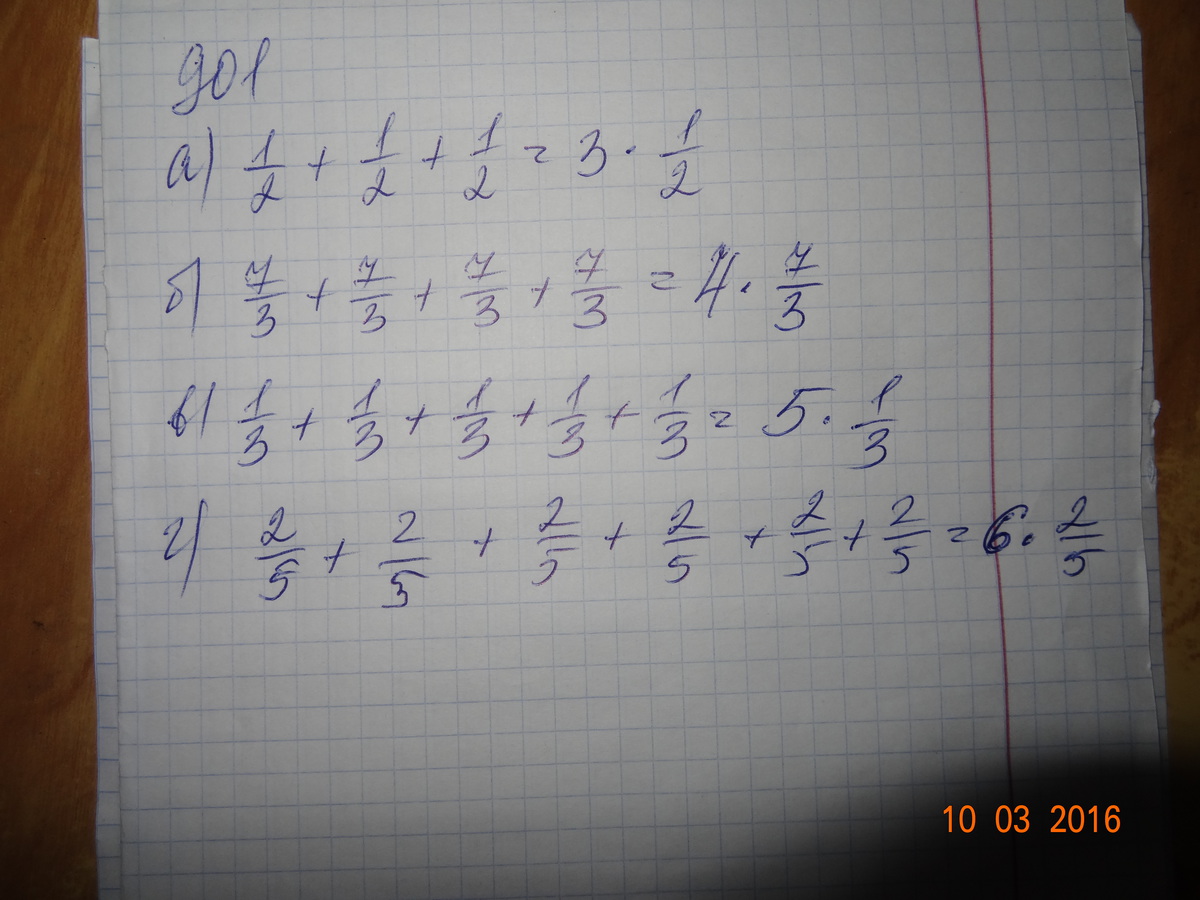 901
а) 1/2 + 1/2 + 1/2 = 3 · 1/2
б) 7/3 + 7/3 + 7/3 + 7/3 = 4 · 7/3
в) 1/3 + 1/3 + 1/3 + 1/3 + 1/3 = 5 · 1/3
г) 2/5 + 2/5 + 2/5 + 2/5 + 2/5 + 2/5 = 6 · 2/5
10 03 2016